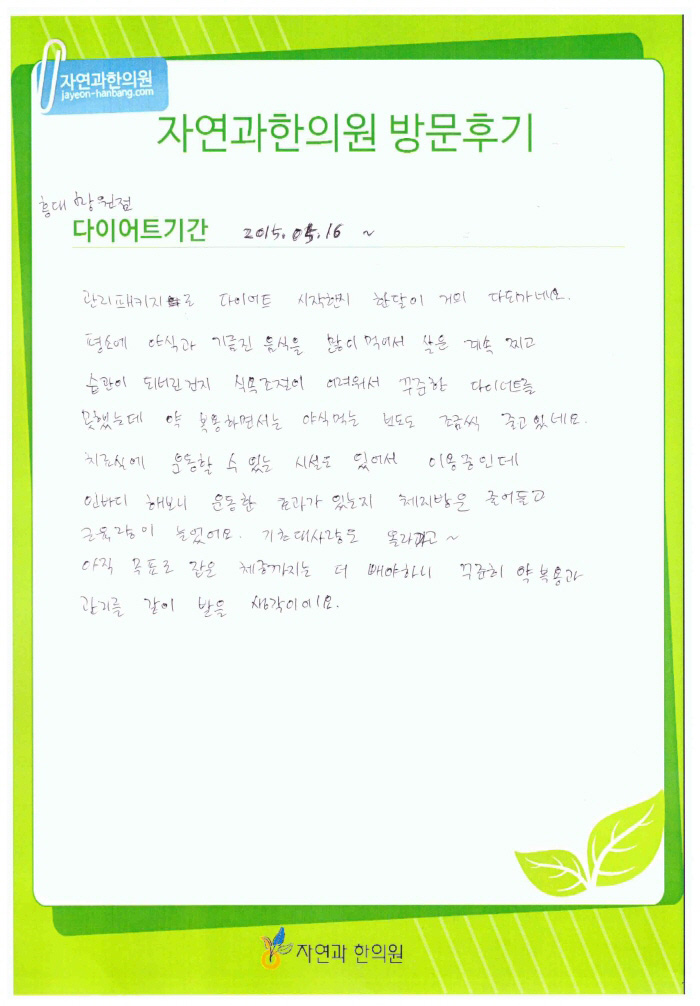 자연과한의원
jayeon-hanbang.com
자연과한의원 방문후기
홍대 망원점
다이어트기간 2015.05.16 ~
관리패키지로 다이어트 시작한지 한달이 거의 다되가네요.
평소에 야식과 기름진 음식을 많이 먹어서 살은 계속 찌고
습관이 되버린건지 식욕조절이 어려워서 꾸준한 다이어트를
못했는데 약 복용하면서는 야식먹는 빈도도 조금씩 줄고있네요.
치료실에 운동할 수 있는 시설도 있어서 이용중인데
인바디 해보니 운동한 효과가 있는지 체지방은 줄어들고
근육량이 늘었어요. 기초대사량도 올라가고~
아직 목표로 잡은 체중까지는 더 빼야하니 꾸준히 약복용과
관리를 같이 받을 생각이에요.
자연과 한의원